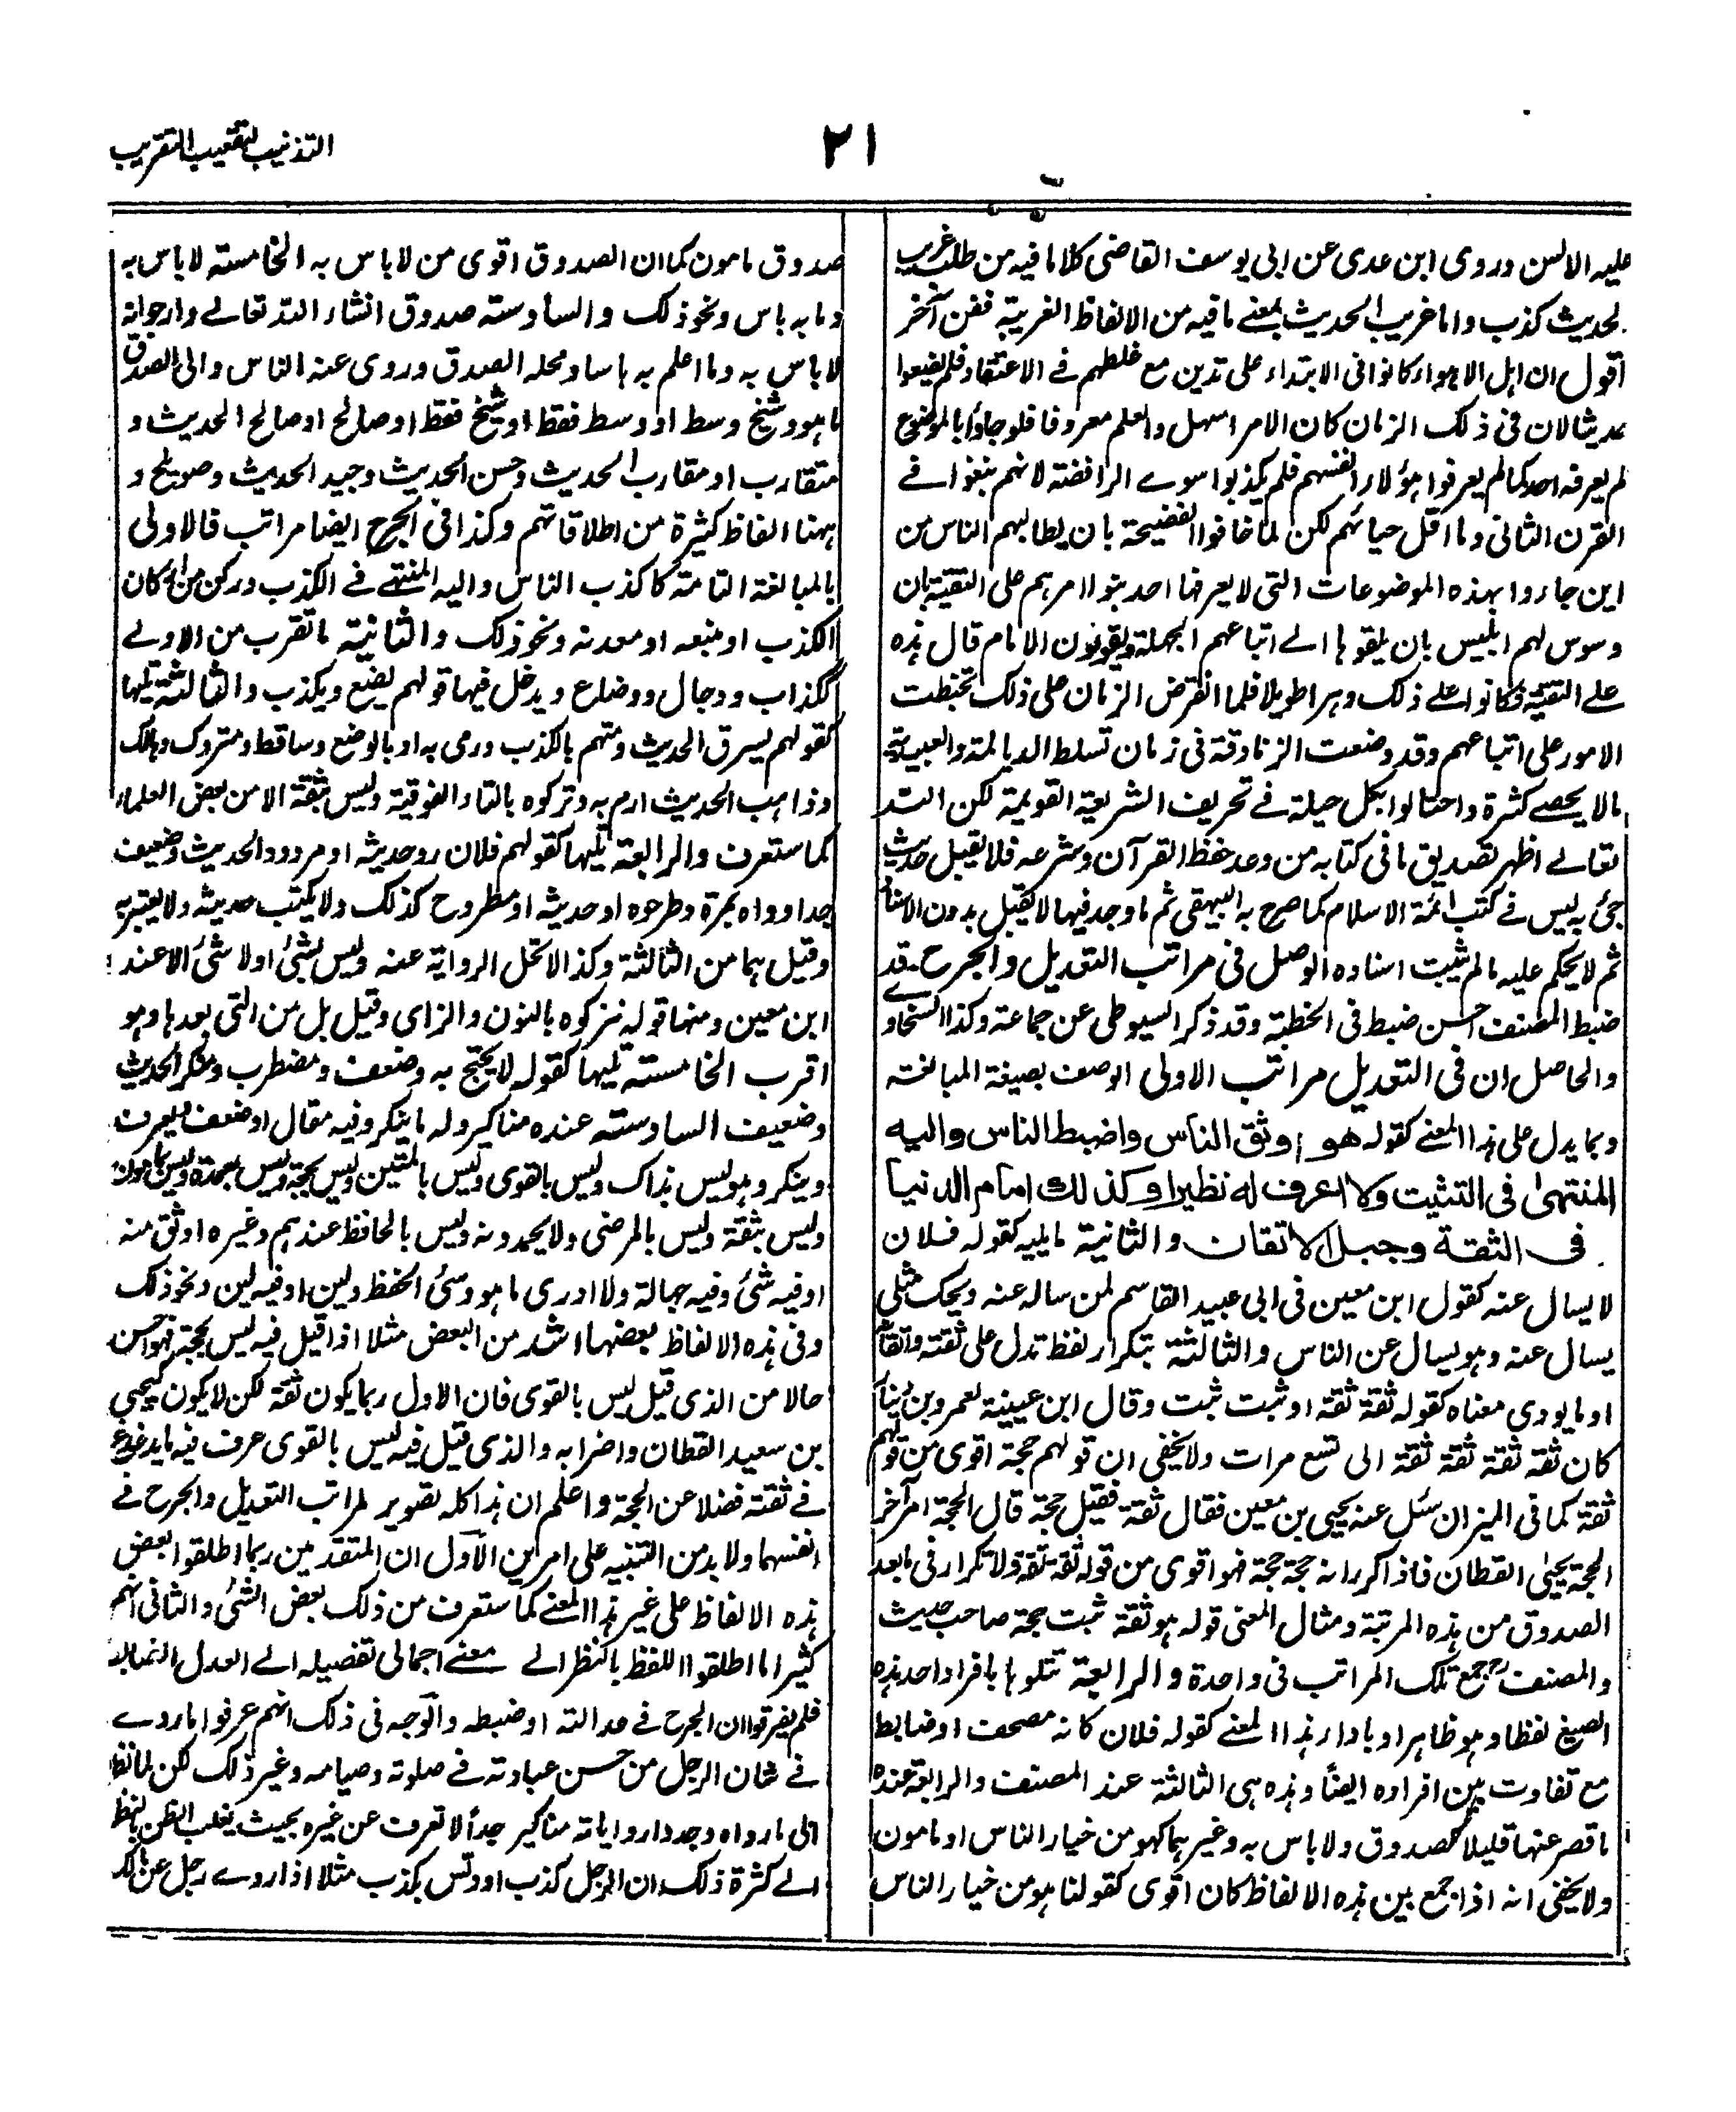 التذنيب لتقعيب التقريب
٢١
عليه الالسن وروى ابن عدى عن ابى يوسف القاضى كلاما فيه من طلب غريب
الحديث كذب واما غريب الحديث بمعنے ما فيه من الالفاظ الغريبة ففن آخر
اقول ان اهل الاهواء كانوا فى الابتداء على تدين مع غلطهم فے الاعتقاد فلم يضيعوا
حديثا لان فى ذلك الزمان كان الامر اسهل والعلم معروفا فلو جاؤا بالموضوع
لم يعرفه احد كما لم يعرفوا هؤلاء انفسهم فلم يكذبوا سوے الرافضة لانهم نبغوا فے
القرن الثانى وما اقل حيائهم لكن لما خافوا الفضيحة بان يطالبهم الناس من
اين جاءوا بهذه الموضوعات التى لا يعرفها احد بنوا امرهم على التقية بان
وسوس لهم ابليس بان يلقوها الے اتباعهم الجهلة ويقولون الامام قال هذه
علے التقية فكانوا علے ذلك دهرا طويلا فلما انقرض الزمان على ذلك تخبطت
الامور على اتباعهم وقد وضعت الزنادقة فى زمان تسلط الديالمة والعبيدية
ما لا يحصے كثرة واحتالوا بكل حيلة فے تحريف الشريعة القويمة لكن الله
تعالے اظهر تصديق ما فى كتابه من وعد حفظ القرآن وشرعه فلا يقبل حديث
جئ به ليس فے كتب ائمة الاسلام كما صرح به البيهقى ثم ما وجد فيها لا يقبل بدون الاسناد
ثم لا يحكم عليه ما لم يثبت اسناده الوصل فى مراتب التعديل والجرح قد
ضبط المصنف احسن ضبط فى الخطبة وقد ذكر السيوطى عن جماعة وكذا السخاوے
والحاصل ان فى التعديل مراتب الاولى الوصف بصيغة المبالغة
وبما يدل على هذا المعنے كقوله هو اوثق الناس واضبط الناس واليه
المنتهىٰ فى التثبت ولا اعرف له نظيرا وكذلك امام الدنيا
فى الثقة وجبل الاتقان والثانية ما يليه كقوله فلان
لا يسال عنه كقول ابن معين فى ابى عبيد القاسم لمن ساله عنه ويحك مثلى
يسال عنه وهو يسال عن الناس والثالثة بتكرار لفظ تدل على ثقته واتقانه
او ما يودى معناه كقوله ثقة ثقة او ثبت ثبت وقال ابن عيينة لعمرو بن دينار
كان ثقة ثقة ثقة ثقة الى تسع مرات ولا يخفى ان قولهم حجة اقوى من قولهم
ثقة كما فى الميزان سئل عنه يحيى بن معين فقال ثقة فقيل حجة قال الحجة امر آخر
الحجة يحيىٰ القطان فاذا كرر انه حجة حجة فهو اقوى من قوله ثقة ثقة ولا تكرار فى ما بعد
الصدوق من هذه المرتبة ومثال المعنى قوله هو ثقة ثبت حجة صاحب حديث
والمصنف رح جمع تلك المراتب فى واحدة والرابعة تتلوها بافراد احد هذه
الصيغ لفظا وهو ظاهر او باداء هذا المعنے كقوله فلان كانه مصحف او ضابط
مع تفاوت بين افراده ايضاً وهذه هى الثالثة عند المصنف والرابعة عنده
ما قصر عنها قليلا كصدوق ولا باس به وغيرهما كهو من خيار الناس او مامون
ولا يخفى انه اذا جمع بين هذه الالفاظ كان اقوى كقولنا هو من خيار الناس
صدوق مامون كما ان الصدوق اقوى من لا باس به الخامسته لا باس به
وما به باس ونحو ذلك والسادسته صدوق انشاء الله تعالے وارجو انه
لا باس به وما اعلم به باسا ومحله الصدق وروى عنه الناس والى الصدق
ما هو وشيخ وسط او وسط فقط او شيخ فقط او صالح او صالح الحديث و
متقارب او مقارب الحديث وحسن الحديث وجيد الحديث وصويلح و
ههنا الفاظ كثيرة من اطلاقاتهم وكذا فى الجرح ايضا مراتب فالاولى
بالمبالغة التامة كاكذب الناس واليه المنتهے فے الكذب وركن من اركان
الكذب او منبعه او معدنه ونحو ذلك والثانية ما تقرب من الاولے
ككذاب ودجال ووضاع ويدخل فيها قولهم يضع ويكذب والثالثة تليها
كقولهم يسرق الحديث ومتهم بالكذب ورمى به او بالوضع وساقط ومتروك وهالك
وذاهب الحديث ارم به وتركوه بالتاء الفوقية وليس بثقة الا من بعض العلماء
كما ستعرف والرابعة تليها كقولهم فلان رد حديثه او مردود الحديث وضعيف
جدا وواه بمرة وطرحوه او حديثه او مطروح كذلك ولا يكتب حديثه ولا يعتبر به
وقيل هما من الثالثة وكذا لا تحل الرواية عنه وليس بشئ او لا شئ الا عند
ابن معين ومنها قوله نزكوه بالنون والزاى وقيل بل من التى بعدها وهو
اقرب الخامسته تليها كقوله لا يحتج به وضعف ومضطرب ومنكر الحديث
وضعيف السادسته عنده مناكير وله ما ينكر وفيه مقال او ضعف ويعرف
وينكر وهو ليس بذاك وليس بالقوى وليس بالمتين وليس بحجة وليس بعمدة وليس بمامون
وليس بثقة وليس بالمرضى ولا يحمدونه وليس بالحافظ عندهم وغيره اوثق منه
او فيه شئ وفيه جهالة ولا ادرى ما هو وسئ الحفظ ولين او فيه لين ونحو ذلك
وفى هذه الالفاظ بعضها اشد من البعض مثلا اذا قيل فيه ليس بحجة فهو احسن
حالا من الذى قيل ليس بالقوى فان الاول ربما يكون ثقة لكن لا يكون كيحيى
بن سعيد القطان واضرابه والذى قيل فيه ليس بالقوى عرف فيه ما يدغدغ
فے ثقته فضلا عن الحجة واعلم ان هذا كله تصوير لمراتب التعديل والجرح فے
انفسهما ولا بد من التنبيه على امرين الاول ان المتقدمين ربما اطلقوا بعض
هذه الالفاظ على غير هذا المعنے كما ستعرف من ذلك بعض الشئ والثانى انهم
كثيرا ما اطلقوا اللفظ بالنظر الے معنے اجمالى تفصيله الے العدل الضابط
فلم يفرقوا ان الجرح فے عدالته او ضبطه والوجه فى ذلك انهم عرفوا ما روے
فے شان الرجل من حسن عبادته فے صلوته وصيامه وغير ذلك لكن لما نظر
الى ما رواه وجدوا رواياته مناكير جداً لا تعرف عن غيره بحيث يغلب الظن بالنظر
الے كثرة ذلك ان الرجل كذب او دلس بكذب مثلا اذا روے رجل عن مالك